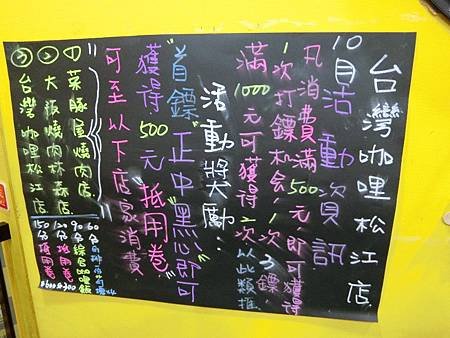 台灣咖哩松江店
10月活動資訊
凡消費滿500元,即可獲得
1次打鏢機會!(3鏢)
滿1000元可獲得2次以此類推
活動獎勵:
"首鏢"正中"黑心即可
獲得500元"抵用卷"
可至以下店家消費
①菜豚屋燒肉店
②大阪燒肉林森店
③台灣咖哩松江店
60分
90分 綜合咖哩飯
120分 抵用卷
150分 抵用卷